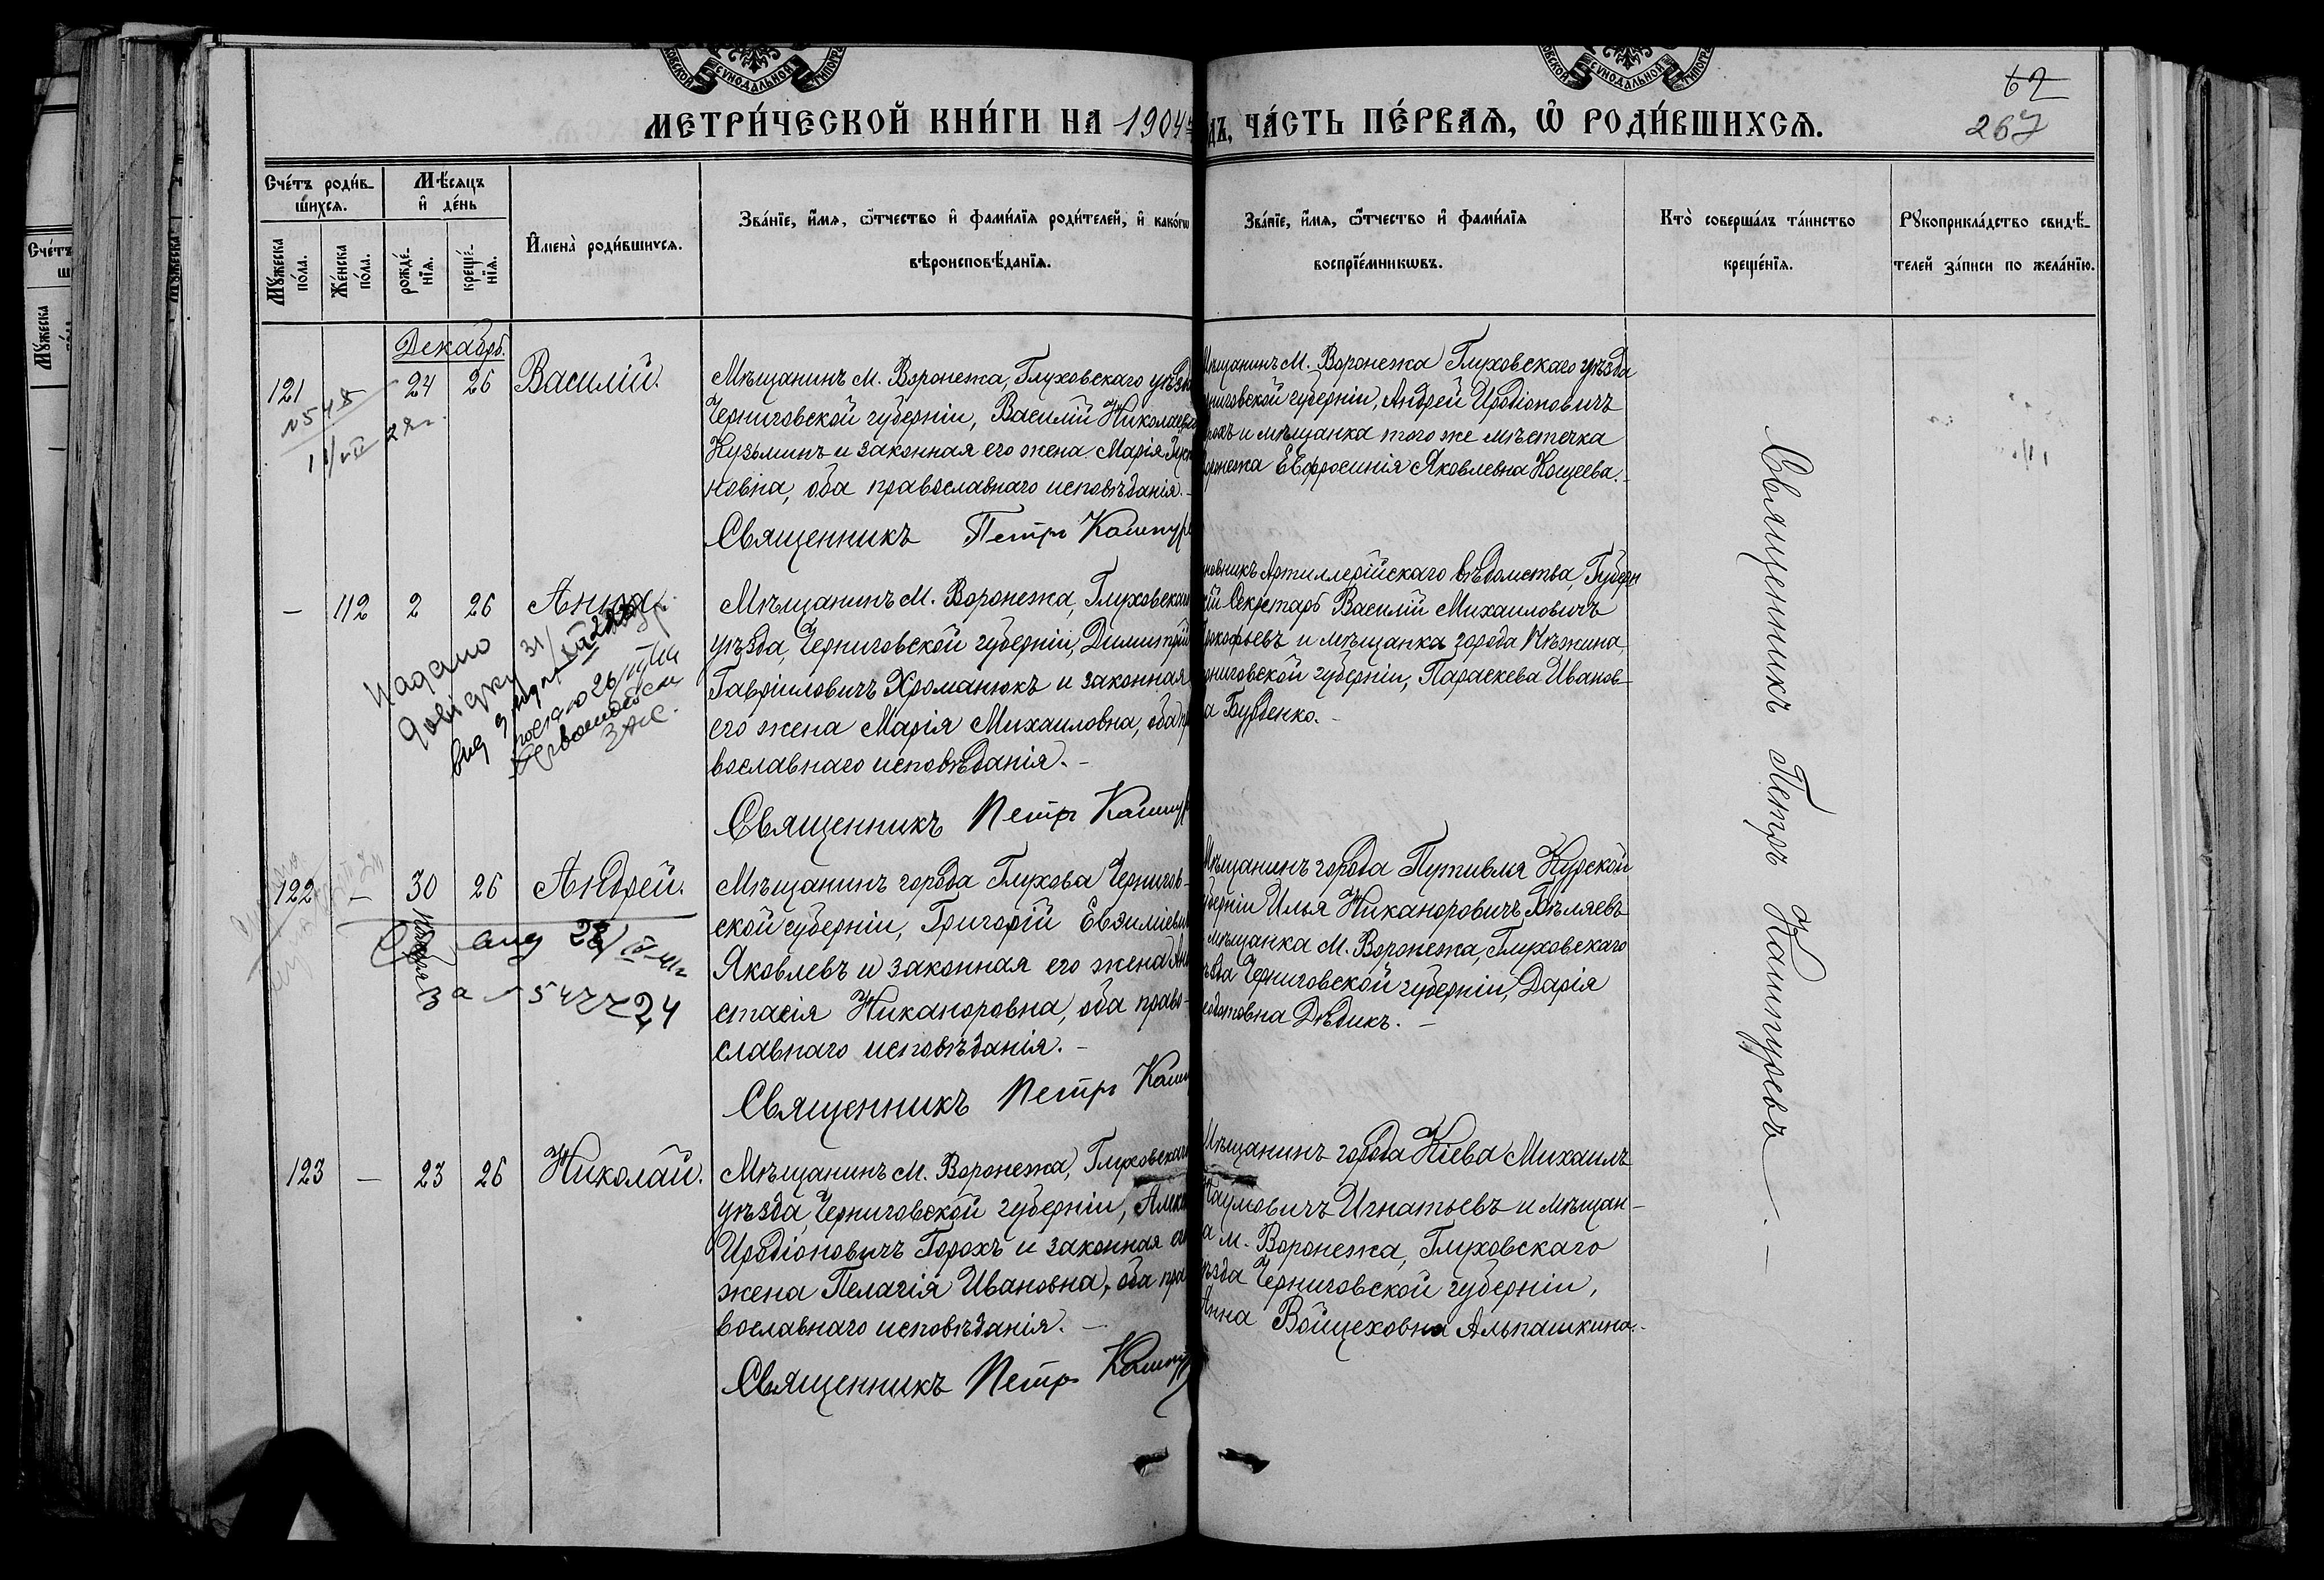 СѴНОДАЛЬНОЙ
СѴНОДАЛЬНОЙ
МЕТРИ́ЧЕСКОЙ КНИ́ГИ НА 1904
ДЪ, ЧА́СТЬ ПЕ́РВАѦ, Ѡ҆ РОДИ́ВШИХСѦ.
62
267
Сче́тъ роди́в-
шихсѧ.
Мꙋ́жеска по́ла.
Же́нска по́ла.
Мѣ́сѧцъ и҆ де́нь
рожде́-
нїѧ.
креще́-
нїѧ.
И҆мена̀ роди́вшихсѧ.
Зва́нїе, и҆́мѧ, ѻ҆́тчество и҆ фами́лїѧ роди́телей, и҆ како́гѡ
вѣроисповѣ́данїѧ.
Зва́нїе, и҆́мѧ, ѻ҆́тчество и҆ фами́лїѧ
воспрїе́мникѡвъ.
Кто̀ соверша́лъ та́инство
креще́нїѧ.
Рꙋкоприкла́дство свидѣ́-
телей за́писи по жела́нїю.
Декабрь.
121
24 26 Василій.
Мѣщанинъ М. Воронежа, Глуховскаго уѣзда
Черниговской губерніи, Василій Николаеви
Кузьминъ и законная его жена Марія
новна, оба православнаго исповѣданія.-
Священникъ Петръ Кашпур
Мѣщанинъ М. Воронежа Глуховскаго уѣзда
рниговской губерніи, Андрей Иродіоновичъ
рохъ и мѣщанка того же мѣстечка
оронежа Евфросинія Яковлевна Кощеева.-
- 112 2 26 Анна.
Надано
довідку 31/
Мѣщанинъ М. Воронежа, Глуховскаго
уѣзда, Черниговской губерніи, Димитрій
Гавріиловичъ Хроманюкъ и законная
его жена Марія Михаиловна, оба пра
вославнаго исповѣданія.-
Священникъ Петръ Кашпур
новникъ Артиллерійскаго вѣдомства, Губерн
кій Секретарь Василій Михаиловичъ
рокофьевъ и мѣщанка города Нѣжина
рниговской губерніи, Параскева Иванов-
а Бурденко.-
122 - 30 26 Андрей.
Ноября
Мѣщанинъ города Глухова Чернигов-
ской губерніи, Григорій Евѳиміеви
Яковлевъ и законная его жена Ана
стасія Никаноровна, оба право-
славнаго исповѣданія.-
Священникъ Петръ Каш
Мѣщанинъ города Путивля Курской
уберніи Илья Никаноровичъ Бѣляевъ
мѣщанка М. Воронежа, Глуховскаго
ѣзда Черниговской губерніи, Дарія
едотовна Дѣдикъ.-
123 - 23 26 Николай.
Мѣщанинъ М. Воронежа, Глуховскаго
уѣзда, Черниговской губерніи, Алек
Иродіоновичъ Горохъ и законная его
жена Пелагія Ивановна, оба пра
вославнаго исповѣданія.-
Священникъ Петръ Кашпур
Мѣщанинъ города Кіева Михаилъ
Наумовичъ Игнатьевъ и мѣщан-
а м. Воронежа, Глуховскаго
ѣзда Черниговской губерніи,
Анна Войцеховна Альпашкина.-
Священникъ Петръ Кашпуревъ.-